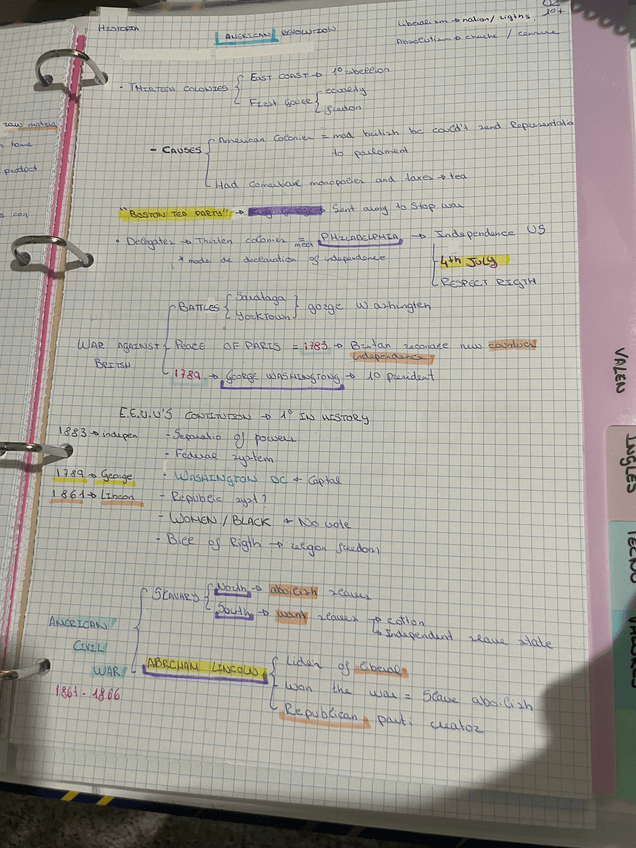 HISTORIA
AMERICAN REVOLUTION
Liberalism → nation/rigths.
Absolutism → churche /
· THIRTEEN COLONIES
EAST COAST → 1º rebellion
First Goure
economy
freedom
- CAUSES
American Colonies = mad british bc could't send Representatio
to parlament
Had comertiave monopolies and taxes → tea
"BOSTON TEA PARTY" → King George → Sent army to stop war
· Delegates → Thirten colonies = meet PHILADELPHIA → Independence US
* made de declaration of independence
4th JULY
RESPECT RIGTH
WAR AGAINST
BRITISH
BATTLES
Saratoga
YORKTOWN
gorge Washington
PEACE OF PARIS = 1783 → Britan reconace new countries
independence
1789 → GEORGE WASHINGTONG → 1º president
E.E.U.U'S CONTITUTION → 1º IN HISTORY
1883 → indepen
1789 → George
1861 → Lincon
- Separatio of powers
- Federal system
- WASHINGTON DC → Capital
- Republic syst?
- WOMEN / BLACK → No vote
- Bice of Rigth → religon freedom
AMERICAN
CIVIL
WAR
1861 - 1866
SLAVARY
North → abolish slaves
South → want slaves → cotton
↳ Independent slave state
ABRCHAM LINCOLN
Lider of liberal
Won the war = Slave abolish
Republican parti creator
raw materia
home
product
s con
VALEN
INGLES
TECNO
VALORES